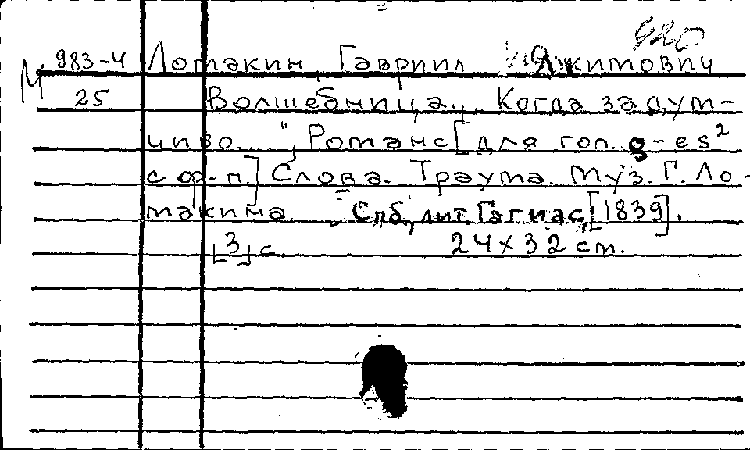 920
М 983-4 Ломакин, Гавриил Якимович
25 Волшебница. „Когда задум-
чиво...", Романс [для гол. g-es²
с ф-п.] Слова. Траума. Муз. Г. Ло-
макина. Спб, лит. Гагиас, [1839].
[3] с. 24×32 cm.